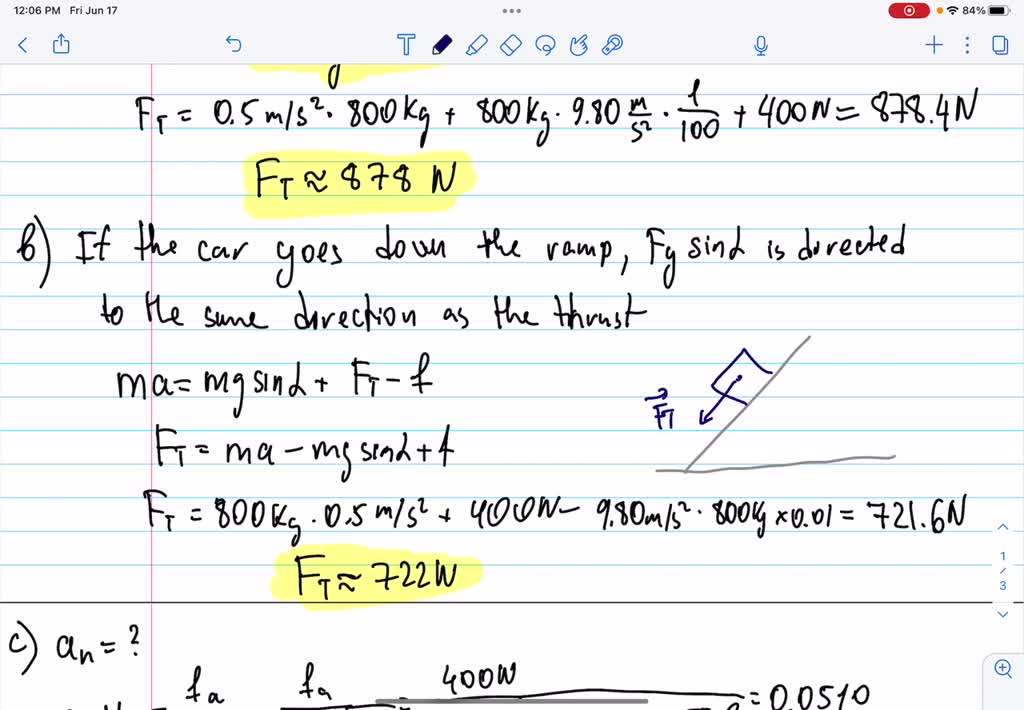 12:06 PM Fri Jun 17
84%
T
F_T = 0.5 m/s² · 800 kg + 800 kg · 9.80 m/s² · 1/100 + 400 N = 878.4 N
F_T ≈ 878 N
b) If the car goes down the ramp, Fg sinα is directed
to the same direction as the thrust
ma = mg sinα + F_T - f
F_T
F_T = ma - mg sinα + f
F_T = 800 kg · 0.5 m/s² + 400 N - 9.80 m/s² · 800 kg × 0.01 = 721.6 N
1
/
3
F_T ≈ 722 N
c) a_n = ?
400 N
= 0.0510